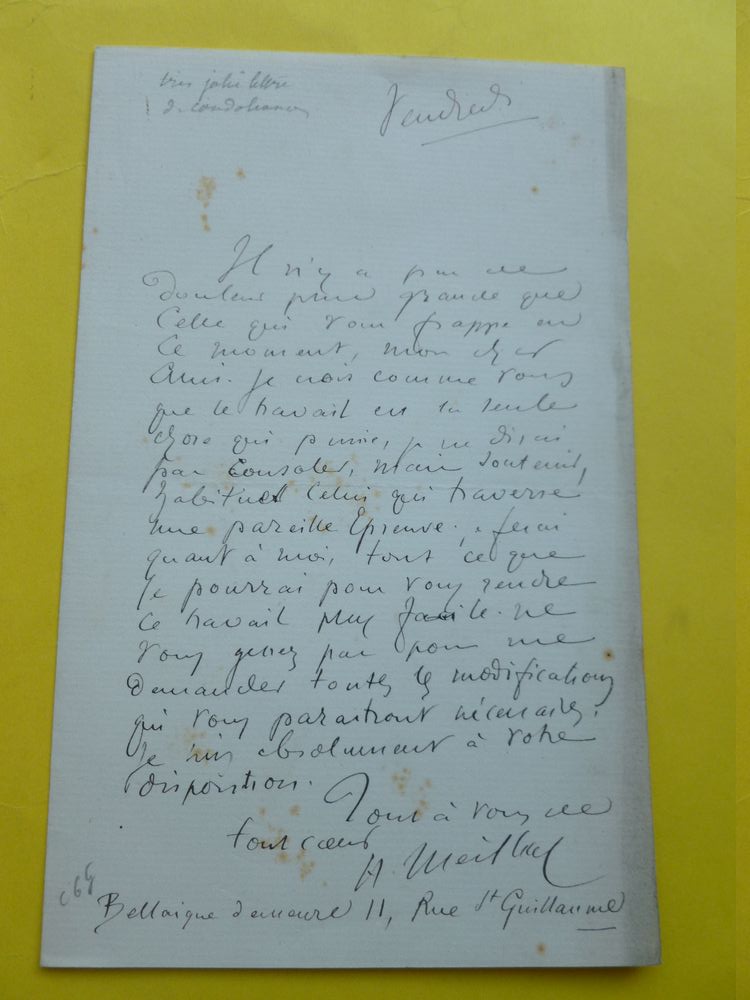 très jolie lettre
de condoléances
Vendredi
Il n'y a pas de
douleur plus grande que
Celle qui vous frappe en
Ce moment, mon cher
Ami. Je crois comme vous
que le travail est la seule
chose qui puisse, je ne dirai
pas Consoler, mais soutenir,
Celui qui traverse
une pareille Epreuve. je ferai
quant à moi, tout ce que
Je pourrai pour vous rendre
Ce travail plus facile. ne
Vous genez pas pour me
Demander toutes les modifications
qui vous paraitront nécessaires.
Je suis absolument à votre
disposition.
Tout à vous de
tout cœur
H. Meilhac
Bellaigue demeure 11, Rue St Guillaume